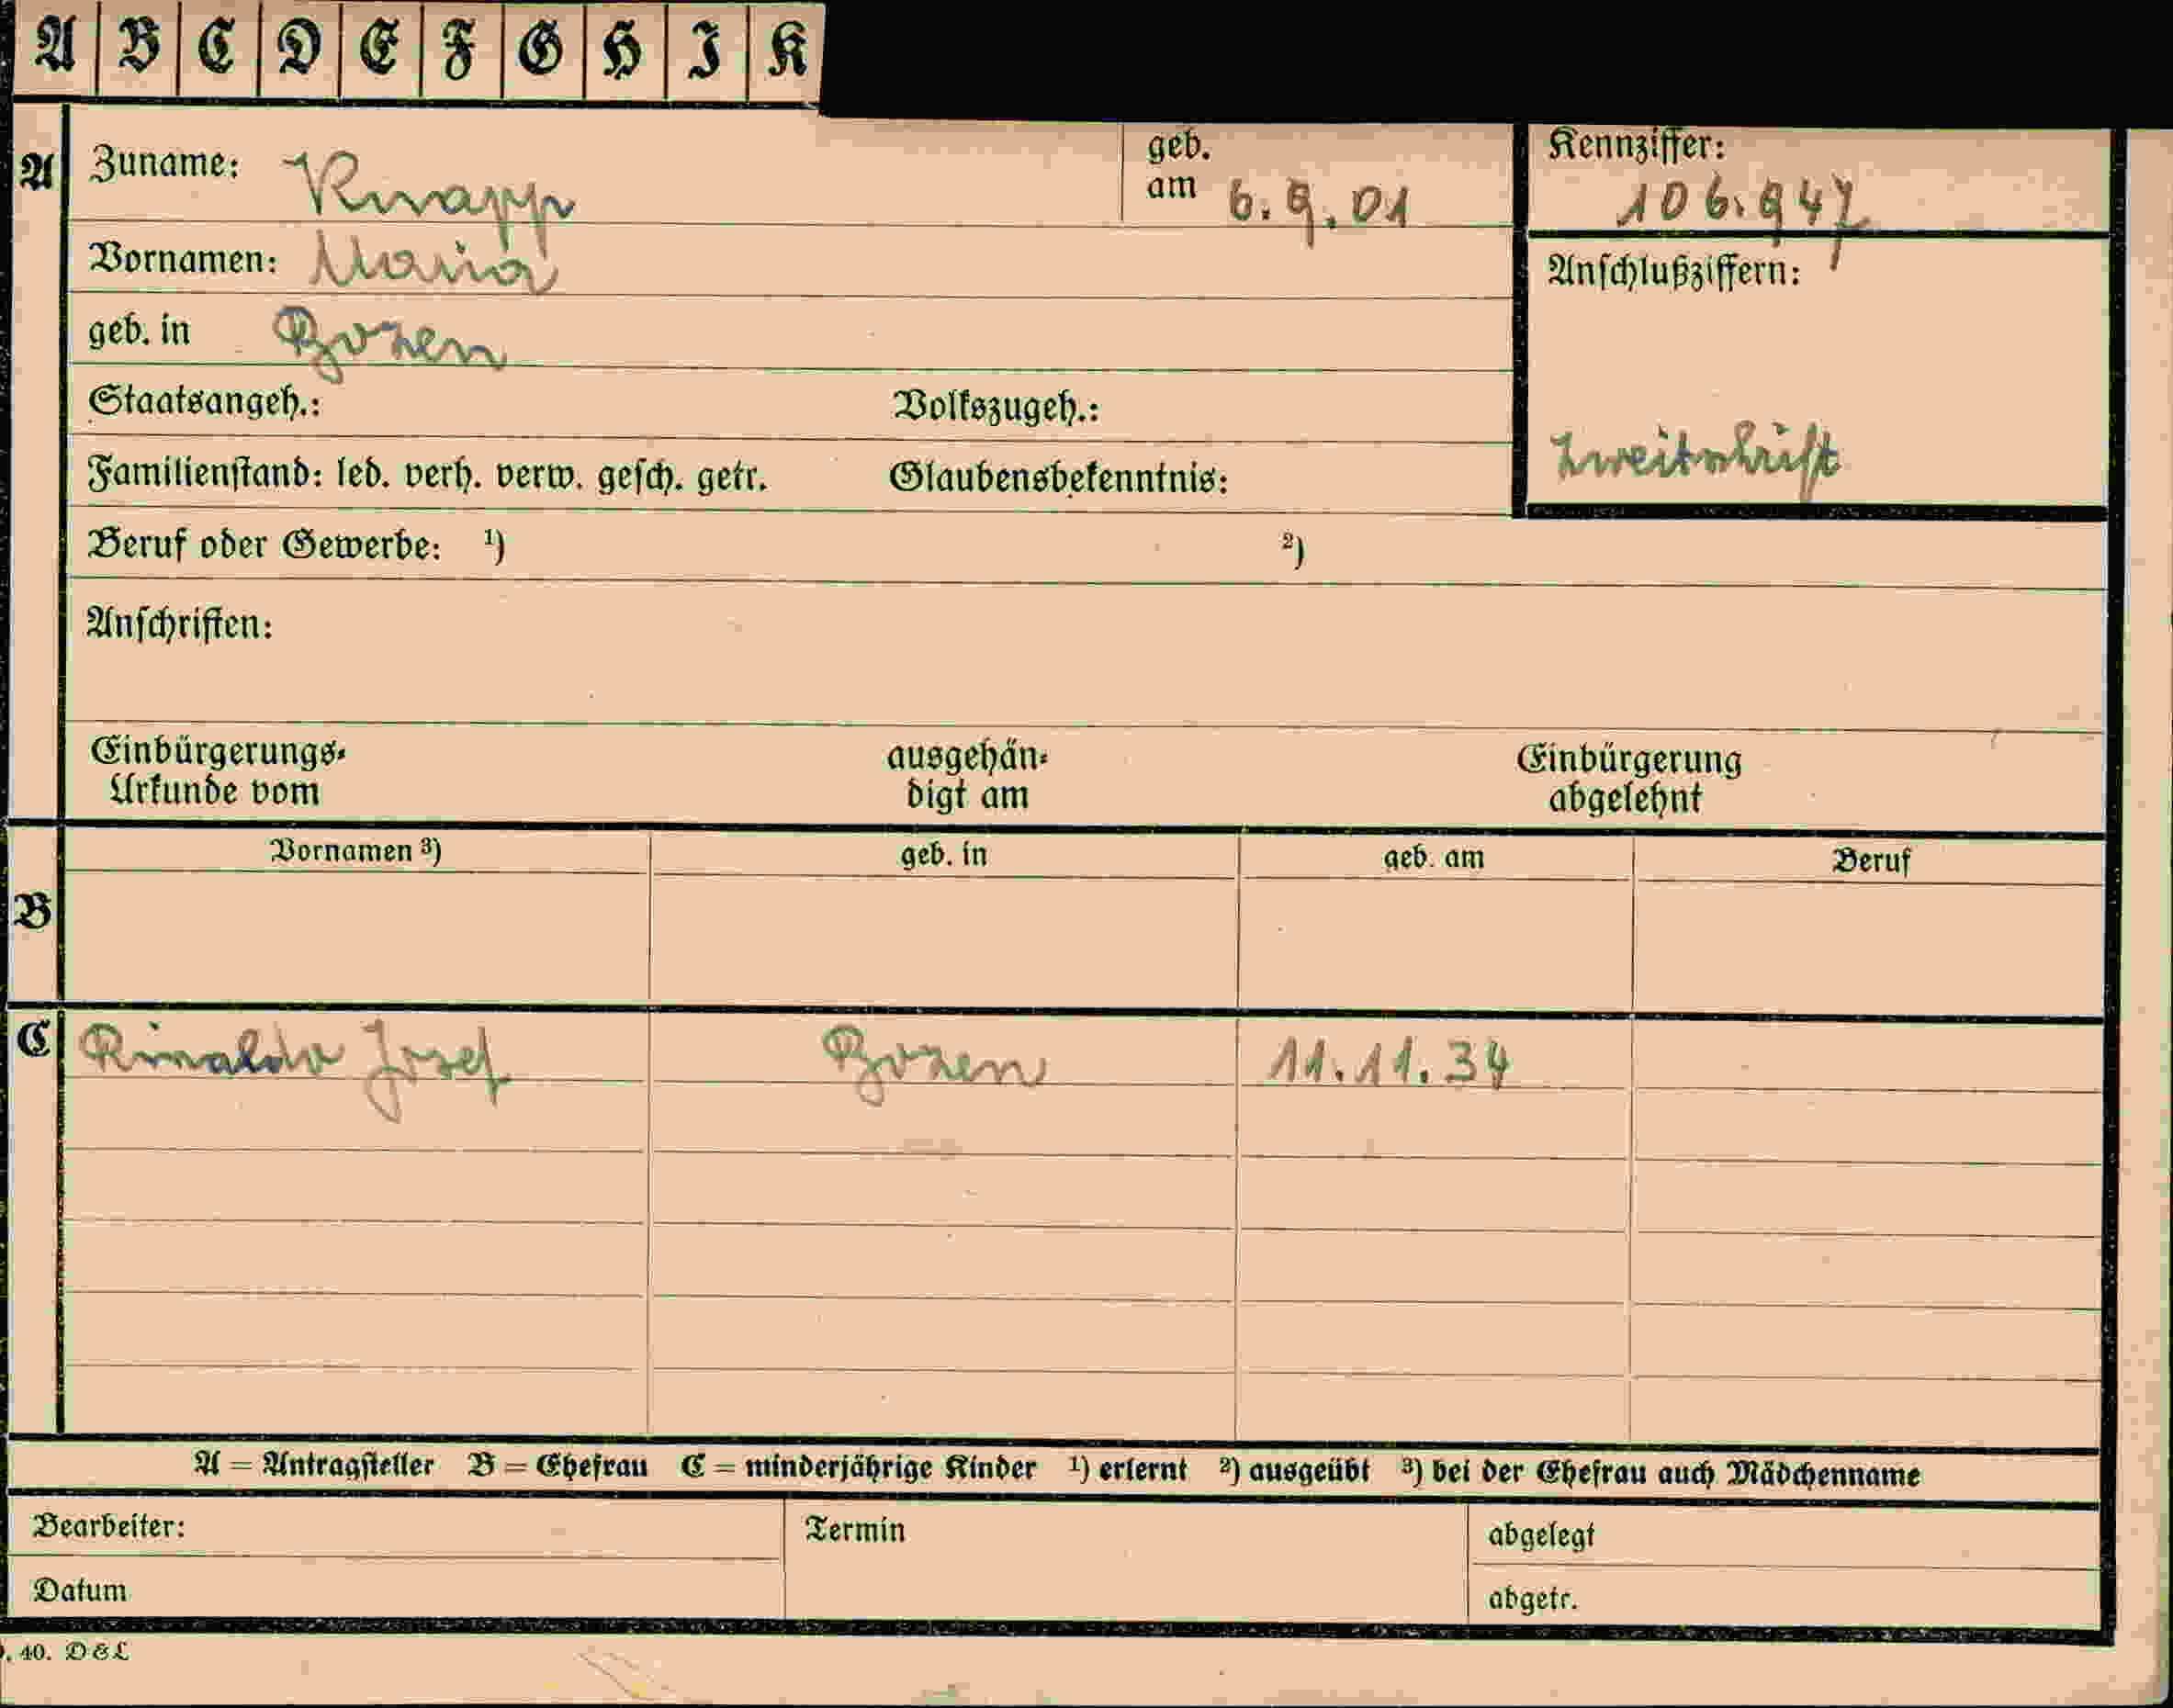 A B C D E F G H I K
A Zuname: Knapp geb. am 6.9.01 Kennziffer: 106.947
Vornamen: Maria Anschlußziffern:
geb. in Bozen
Staatsangeh.: Volkszugeh.:
Zweitschrift
Familienstand: led. verh. verw. gesch. getr. Glaubensbekenntnis:
Beruf oder Gewerbe: ¹) ²)
Anschriften:
Einbürgerungs- ausgehän- Einbürgerung
Urkunde vom digt am abgelehnt
Vornamen ³) geb. in geb. am Beruf
B
C Rinaldo Josef Bozen 11.11.34
A = Antragsteller B = Ehefrau C = minderjährige Kinder ¹) erlernt ²) ausgeübt ³) bei der Ehefrau auch Mädchenname
Bearbeiter: Termin abgelegt
Datum abgetr.
. 40. D & L